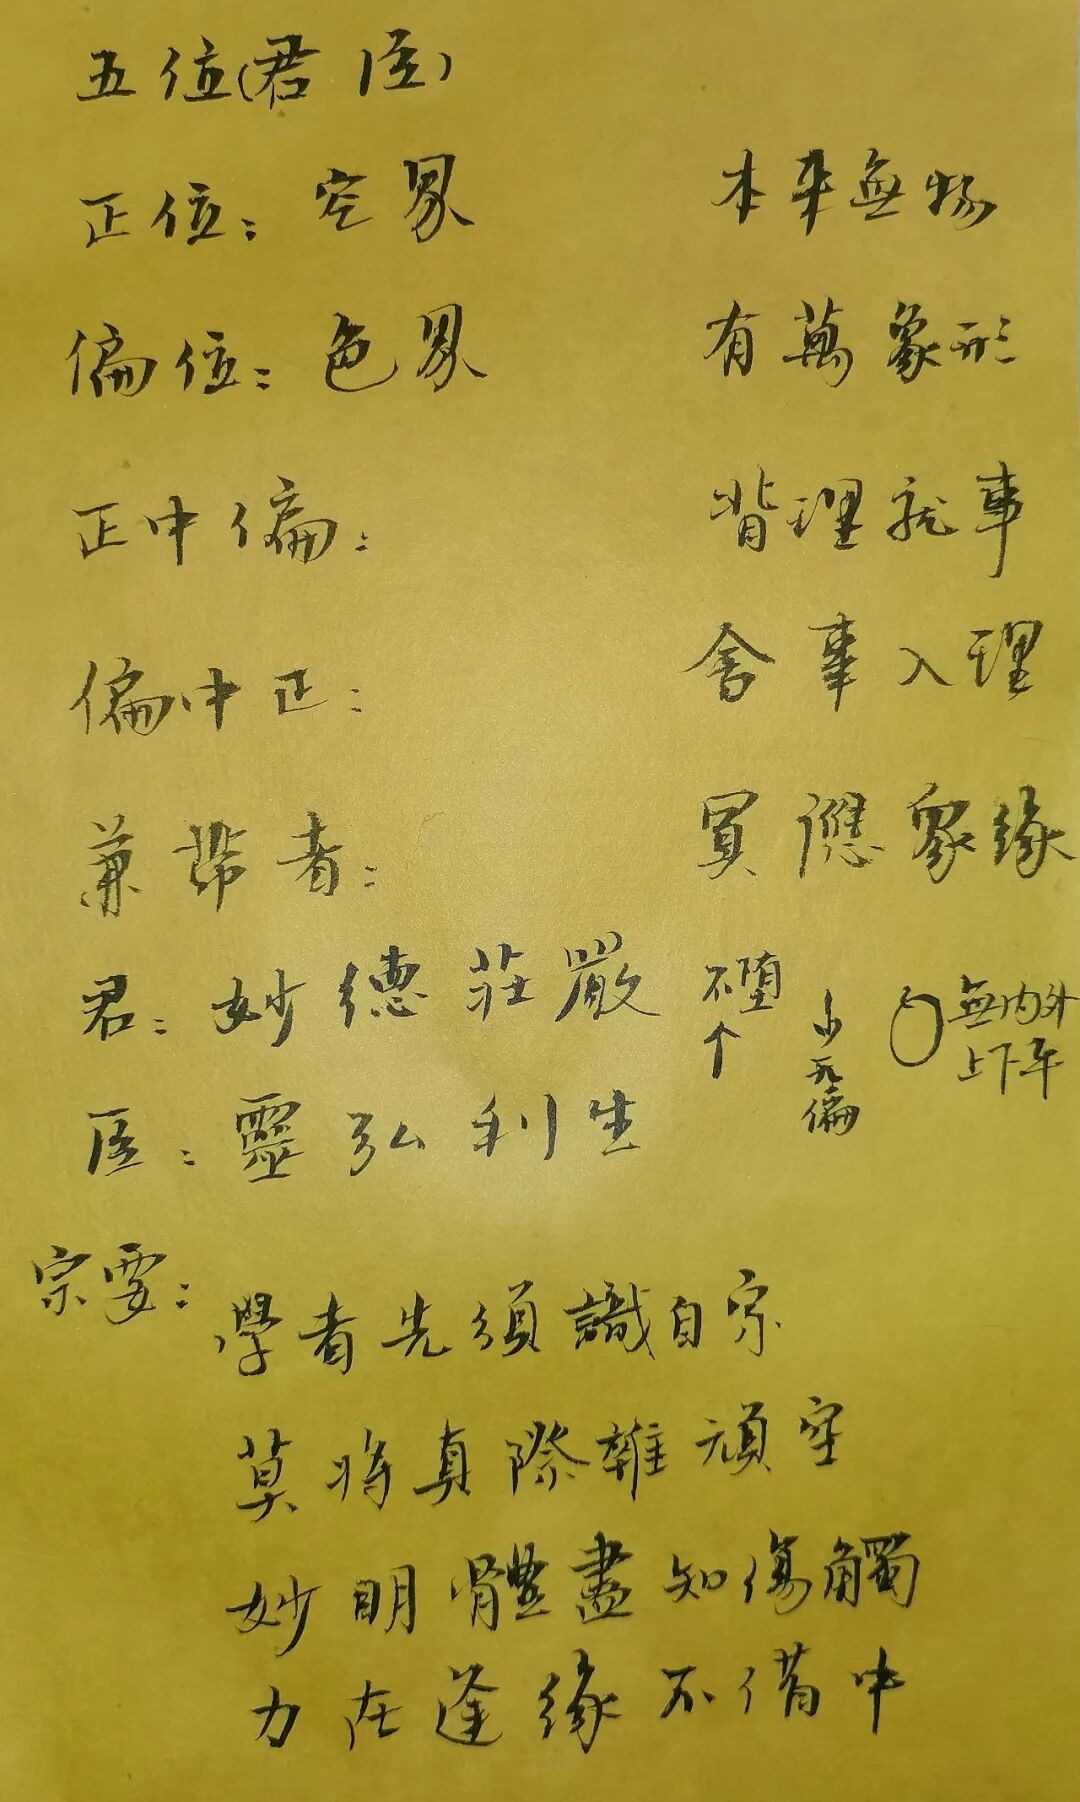 五位(君臣)
正位：空界 本来無物
偏位：色界 有萬象形
正中偏： 背理就事
偏中正： 舍事入理
兼帶者： 冥應眾緣
君：妙德莊嚴 不墮 無內外
↑ 偏 上下
臣：靈弘利生
宗要：
學者先須識自宗
莫將真際雜頑空
妙明體盡知傷觸
力在逢緣不借中